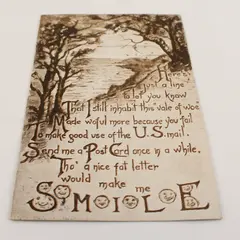 Here's
just a line
to let you know
That I still inhabit this vale of woe
Made woful more because you fail
To make good use of the U.S. mail.
Send me a Post Card once in a while,
Tho' a nice fat letter
would make me
SMILE